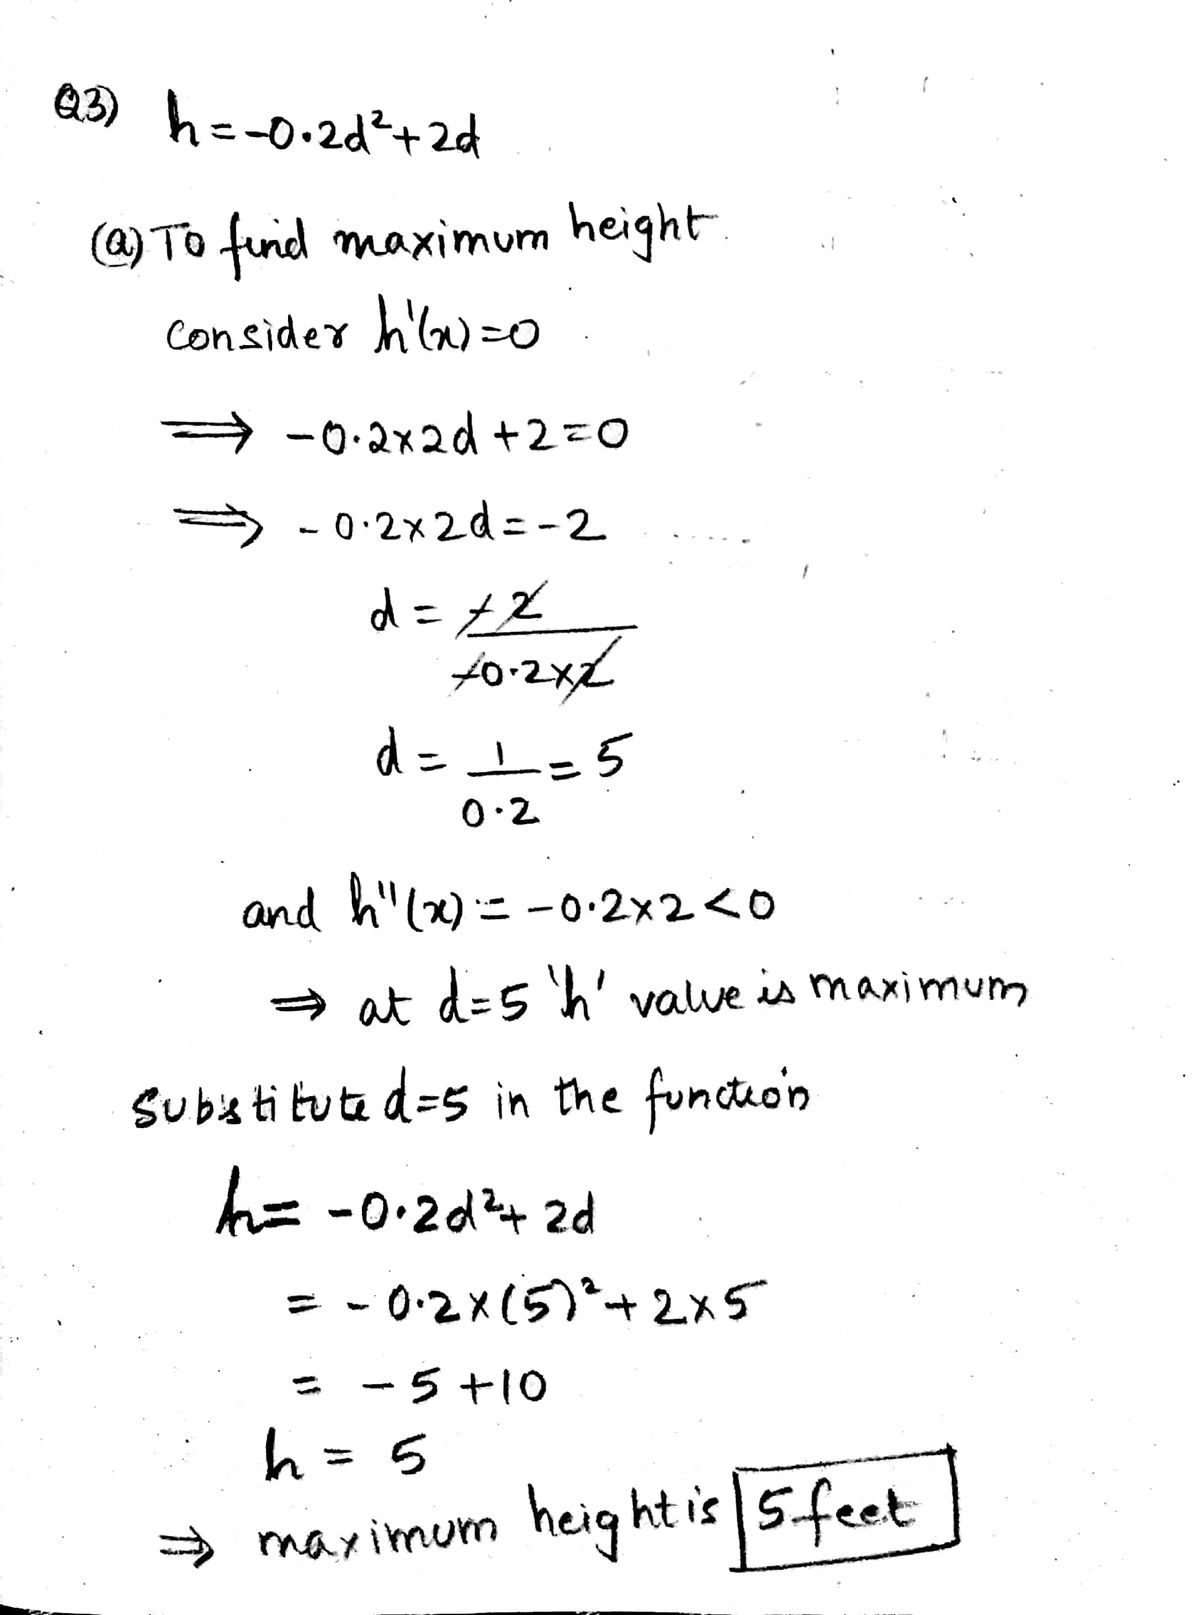 Q3) h = -0.2d² + 2d
(a) To find maximum height
consider h'(x) = 0
⟹ -0.2×2d + 2 = 0
⟹ -0.2×2d = -2
d = -2
-0.2×2
d = 1 = 5
0.2
and h''(x) = -0.2×2 < 0
⇒ at d=5 'h' value is maximum
Substitute d=5 in the function
h = -0.2d² + 2d
= -0.2×(5)² + 2×5
= -5 + 10
h = 5
⇒ maximum height is 5 feet